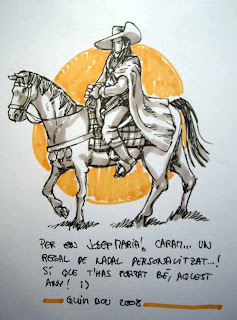 PER EN JOSEP MARIA! CARAM... UN
REGAL DE NADAL PERSONALITZAT...!
SÍ QUE T'HAS PORTAT BÉ, AQUEST
ANY! ;)
QUIM BOU 2008